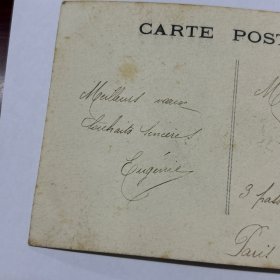 CARTE POST
Meilleurs vœux
Souhaits sincères
Eugénie
M
3 pass
Paris